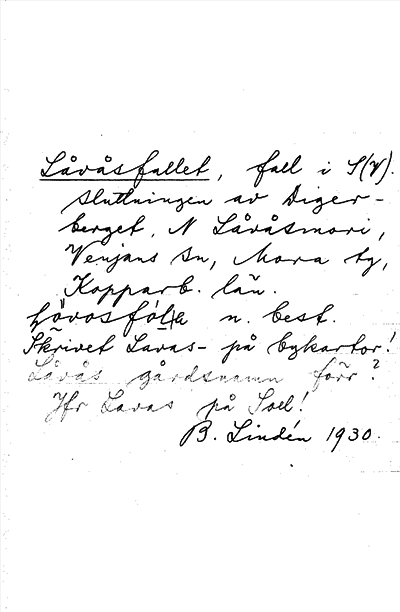 Låvåsfallet, fall i S(V).
sluttningen av Diger-
berget, N Låvåsmori,
Venjans sn, Mora tg,
Kopparb. län.
Lövosföla n. best.
Skrivet Lavas- på bykartor!
Låvås gårdsnamn förr?
Jfr Lavas på Soel!
B. Lindén 1930.